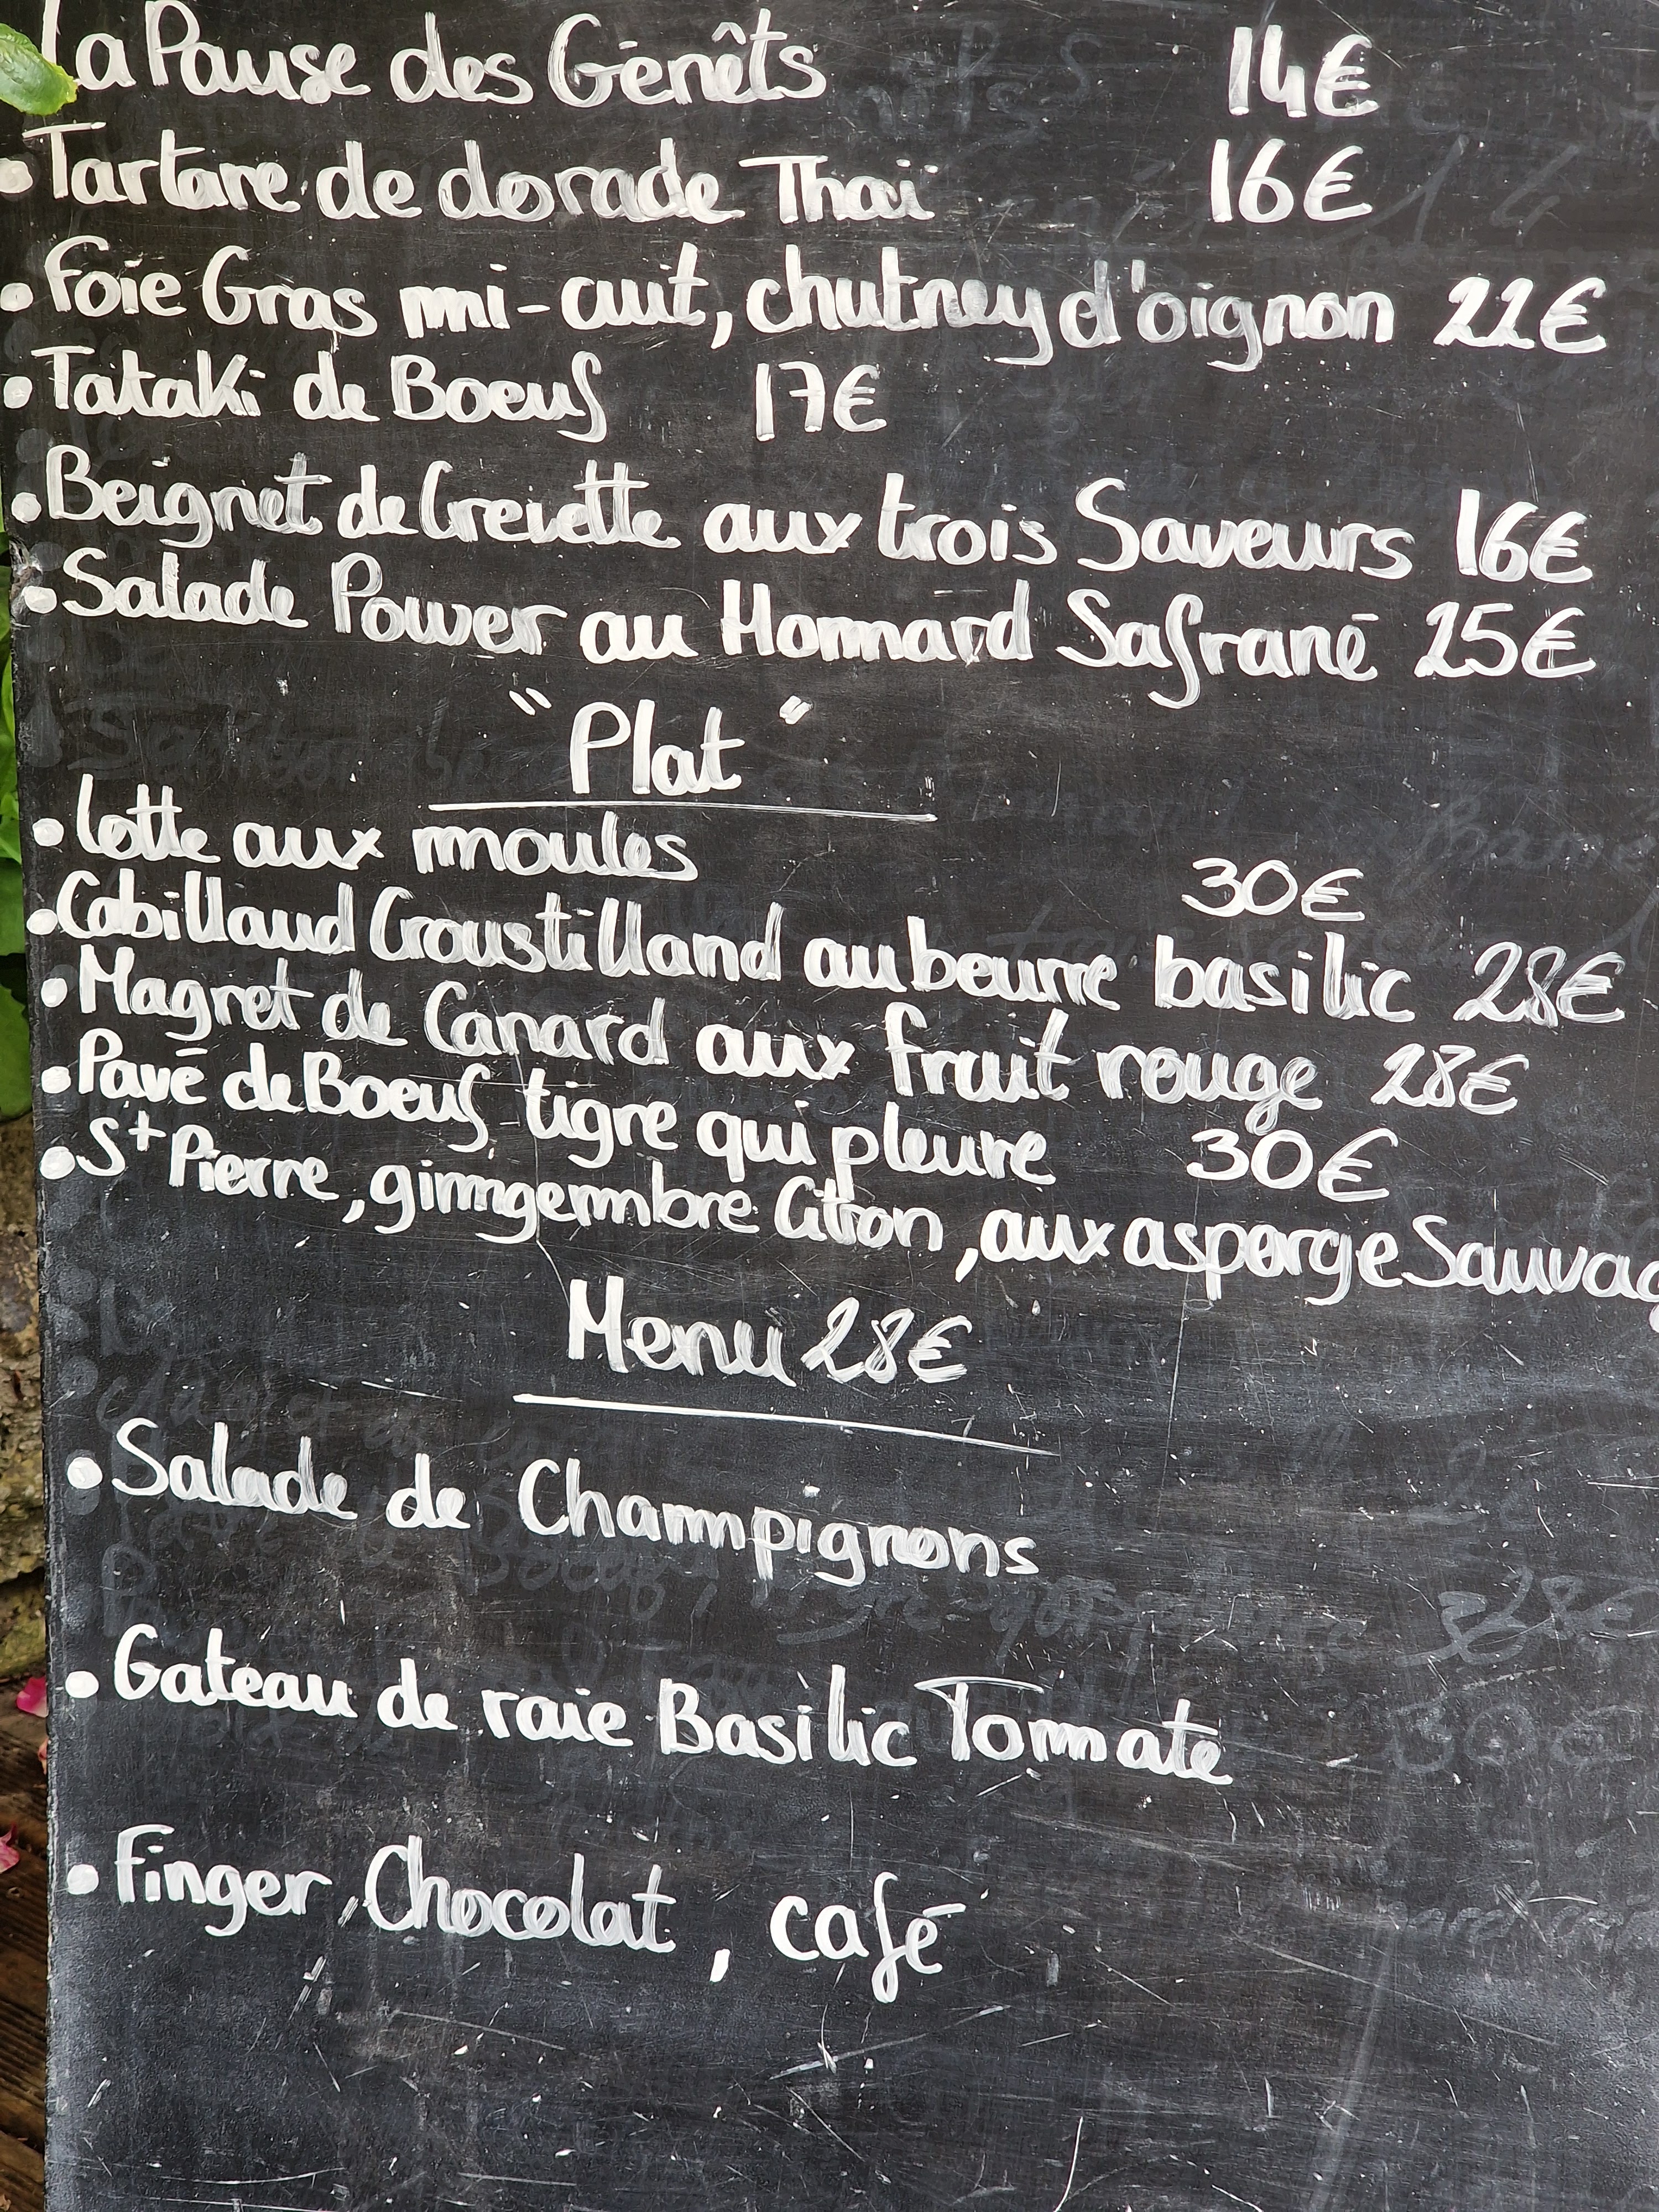 La Pause des Génêts 14€
• Tartare de dorade Thai 16€
• Foie Gras mi-cuit, chutney d'oignon 22€
• Tataki de Boeuf 17€
• Beignet de Crevette aux trois Saveurs 16€
• Salade Power au Hommard Safrané 25€
"Plat"
• Lotte aux moules 30€
• Cabillaud Croustilland au beurre basilic 28€
• Magret de Canard aux fruit rouge 28€
• Pavé de Boeuf tigre qui pleure 30€
• St Pierre, gimgembre Citron, aux asperge Sauvag
Menu 28€
• Salade de Champignons
• Gateau de raie Basilic Tommate
• Finger, Chocolat, café